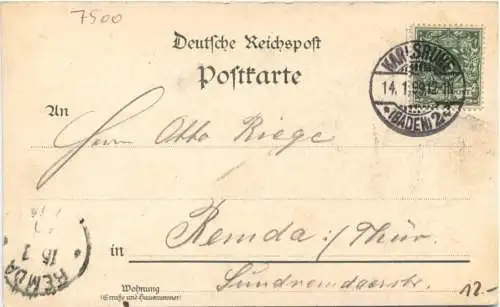 7500
Deutsche Reichspost
Postkarte
KARLSRUHE
14.1.99.12-1N.
*(BADEN)2.c.
An
Herrn Otto Riege
in Remda :/ Thür.
REMDA
Wohnung
(Straße und Hausnummer)
Sundremdaerstr.
12.-